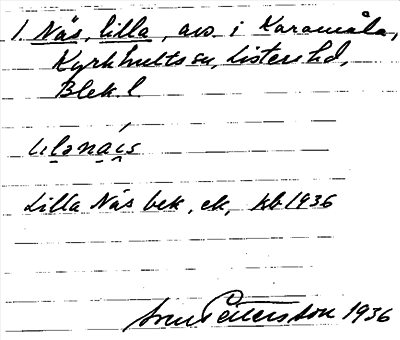 1. Näs, lilla, avs. i Karamåla,
Kyrkhults sn, Listers hd,
Blek. l
Lilla Näs bek, ek, kb 1936
Sven Pettersson 1936